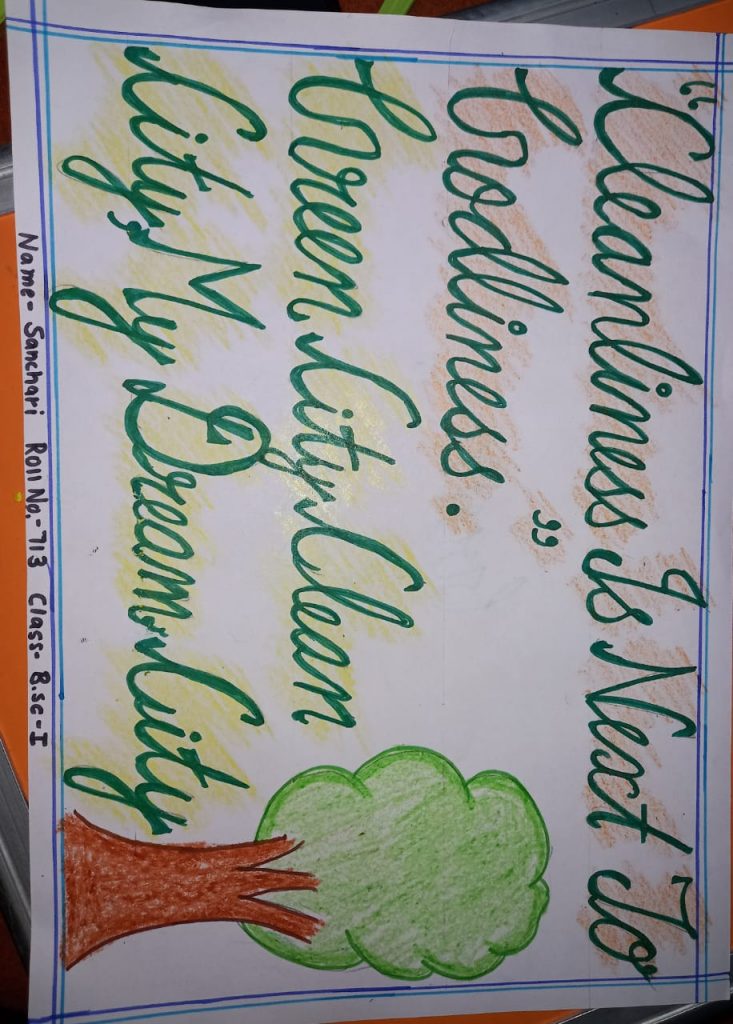 "Cleanliness Is Next To
Godliness."
Green City, Clean
City, My Dream City
Name- Sanchari Roll No.- 713 Class- B.sc-I